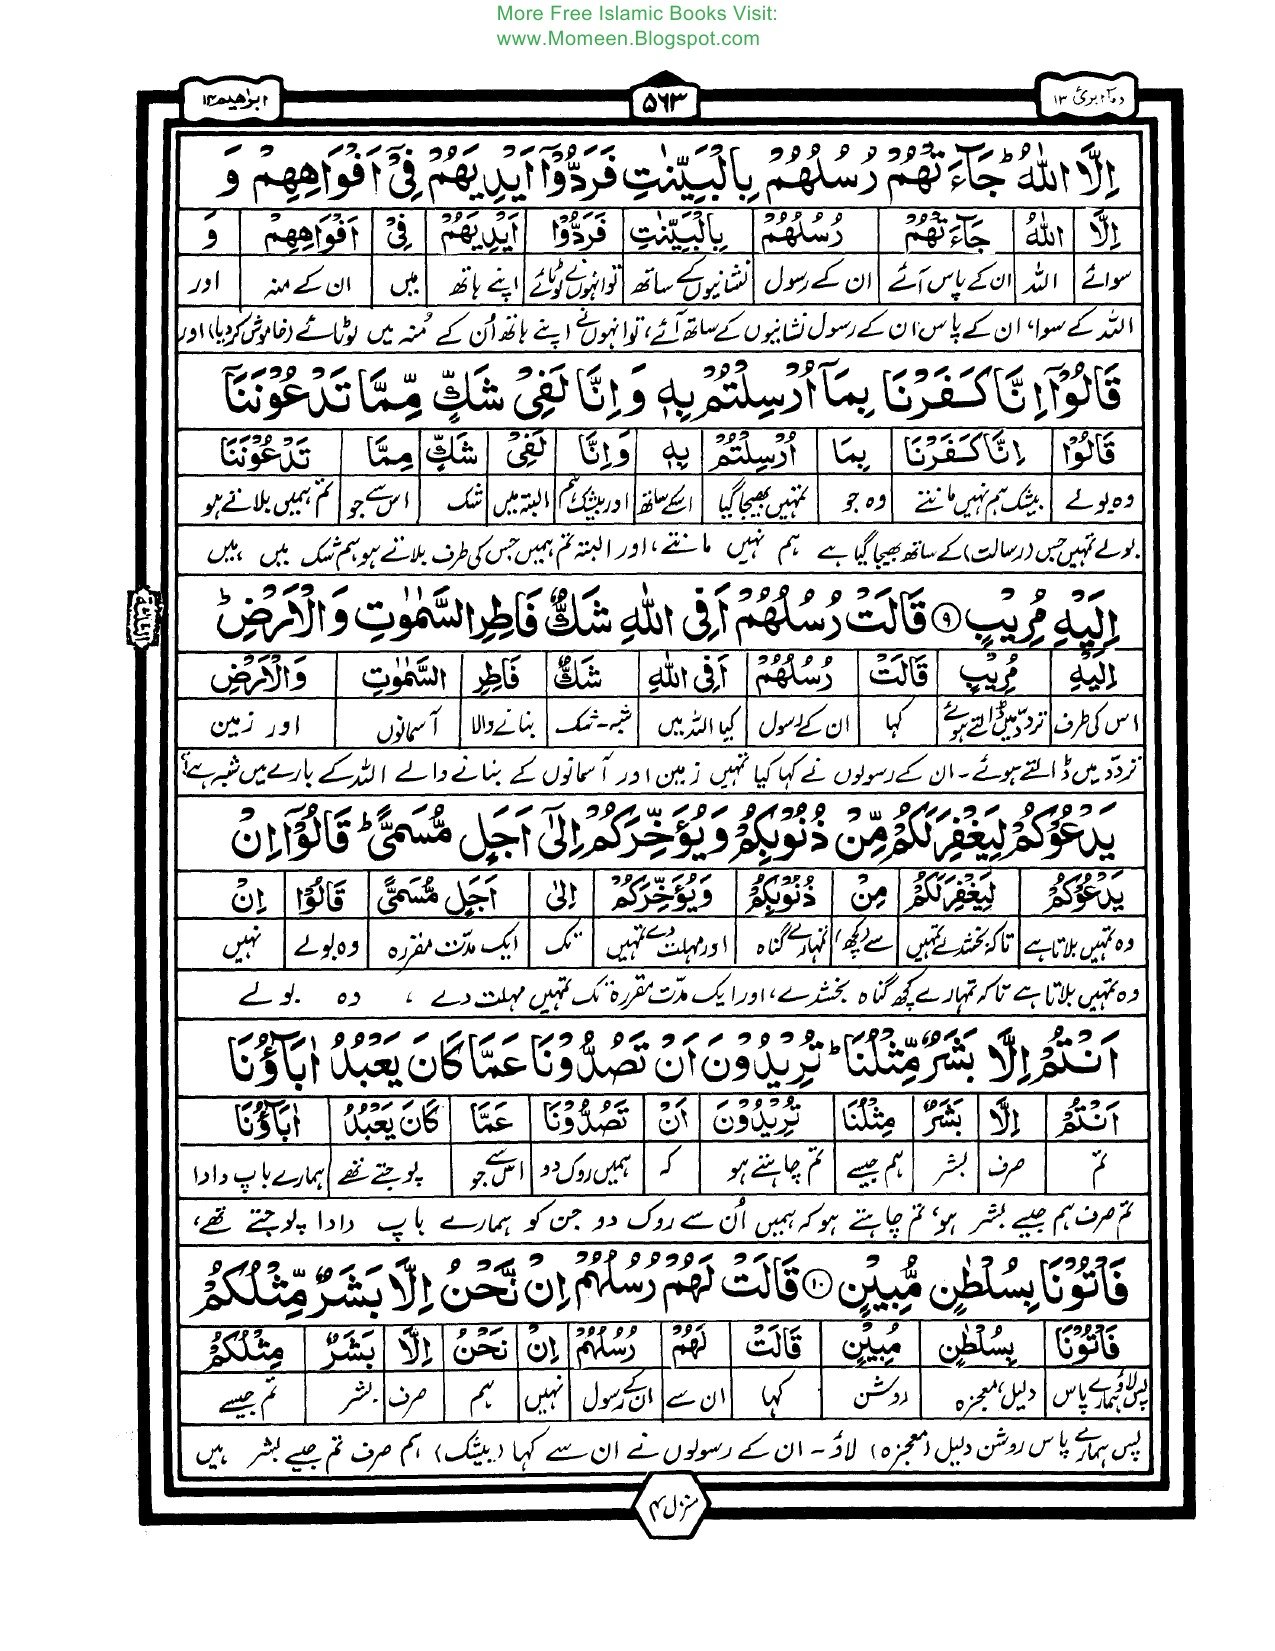 More Free Islamic Books Visit:
www.Momeen.Blogspot.com
ومآ ابرئ ١٣ ۵۶۳ ابرٰهيم ١٤
اِلَّا اللّٰهُ ؕ جَآءَتْهُمْ رُسُلُهُمْ بِالْبَيِّنٰتِ فَرَدُّوْٓا اَيْدِيَهُمْ فِيْٓ اَفْوَاهِهِمْ وَ
اِلَّا اللّٰهُ جَآءَتْهُمْ رُسُلُهُمْ بِالْبَيِّنٰتِ فَرَدُّوْٓا اَيْدِيَهُمْ فِيْٓ اَفْوَاهِهِمْ وَ
سوائے اللہ ان کے پاس آئے ان کے رسول نشانیوں کے ساتھ تو انہوں نے لوٹائے اپنے ہاتھ میں ان کے منہ اور
اللہ کے سوا، ان کے پاس ان کے رسول نشانیوں کے ساتھ آئے، تو انہوں نے اپنے ہاتھ اُن کے مُنہ میں لوٹائے (خاموش کر دیا) اور
قَالُوْٓا اِنَّا كَفَرْنَا بِمَآ اُرْسِلْتُمْ بِهٖ وَاِنَّا لَفِيْ شَكٍّ مِّمَّا تَدْعُوْنَنَآ
قَالُوْٓا اِنَّا كَفَرْنَا بِمَا اُرْسِلْتُمْ بِهٖ وَاِنَّا لَفِيْ شَكٍّ مِمَّا تَدْعُوْنَنَا
وہ بولے بیشک ہم نہیں مانتے وہ جو تمہیں بھیجا گیا اسکے ساتھ اور بیشک ہم البتہ میں شک اس سے جو تم ہمیں بلاتے ہو
بولے تمہیں جس (رسالت) کے ساتھ بھیجا گیا ہے ہم نہیں مانتے، اور البتہ تم ہمیں جس کی طرف بلاتے ہو ہم شک میں ہیں
اِلَيْهِ مُرِيْبٍ ۹ قَالَتْ رُسُلُهُمْ اَفِي اللّٰهِ شَكٌّ فَاطِرِ السَّمٰوٰتِ وَالْاَرْضِ ؕ
اِلَيْهِ مُرِيْبٍ قَالَتْ رُسُلُهُمْ اَفِي اللّٰهِ شَكٌّ فَاطِرِ السَّمٰوٰتِ وَالْاَرْضِ
اس کی طرف تردد میں ڈالتے ہوئے کہا ان کے رسول کیا اللہ میں شبہ - شک بنانے والا آسمانوں اور زمین
تردّد میں ڈالتے ہوئے - ان کے رسولوں نے کہا کیا تمہیں زمین اور آسمانوں کے بنانے والے اللہ کے بارے میں شبہ ہے؟
يَدْعُوْكُمْ لِيَغْفِرَ لَكُمْ مِّنْ ذُنُوْبِكُمْ وَيُؤَخِّرَكُمْ اِلٰٓى اَجَلٍ مُّسَمًّى ؕ قَالُوْٓا اِنْ
يَدْعُوْكُمْ لِيَغْفِرَ لَكُمْ مِنْ ذُنُوْبِكُمْ وَيُؤَخِّرَكُمْ اِلٰى اَجَلٍ مُّسَمًّى قَالُوْٓا اِنْ
وہ تمہیں بلاتا ہے تاکہ بخشدے تمہیں سے (کچھ) تمہارے گناہ اور مہلت دے تمہیں تک ایک مدّت مقررہ وہ بولے نہیں
وہ تمہیں بلاتا ہے تاکہ تمہارے کچھ گناہ بخشدے، اور ایک مدّت مقررہ تک تمہیں مہلت دے ، وہ بولے
اَنْتُمْ اِلَّا بَشَرٌ مِّثْلُنَا ؕ تُرِيْدُوْنَ اَنْ تَصُدُّوْنَا عَمَّا كَانَ يَعْبُدُ اٰبَآؤُنَا
اَنْتُمْ اِلَّا بَشَرٌ مِثْلُنَا تُرِيْدُوْنَ اَنْ تَصُدُّوْنَا عَمَّا كَانَ يَعْبُدُ اٰبَآؤُنَا
تم صرف بشر ہم جیسے تم چاہتے ہو کہ ہمیں روک دو اس سے جو پوجتے تھے ہمارے باپ دادا
تم صرف ہم جیسے بشر ہو، تم چاہتے ہو کہ ہمیں اُن سے روک دو جن کو ہمارے باپ دادا پوجتے تھے،
فَاْتُوْنَا بِسُلْطٰنٍ مُّبِيْنٍ ۱۰ قَالَتْ لَهُمْ رُسُلُهُمْ اِنْ نَّحْنُ اِلَّا بَشَرٌ مِّثْلُكُمْ
فَاْتُوْنَا بِسُلْطٰنٍ مُبِيْنٍ قَالَتْ لَهُمْ رُسُلُهُمْ اِنْ نَحْنُ اِلَّا بَشَرٌ مِثْلُكُمْ
پس لاؤ ہمارے پاس دلیل، معجزہ روشن کہا ان سے ان کے رسول نہیں ہم صرف بشر تم جیسے
پس ہمارے پاس روشن دلیل (معجزہ) لاؤ - ان کے رسولوں نے ان سے کہا (بیشک) ہم صرف تم جیسے بشر ہیں
منزل ۴